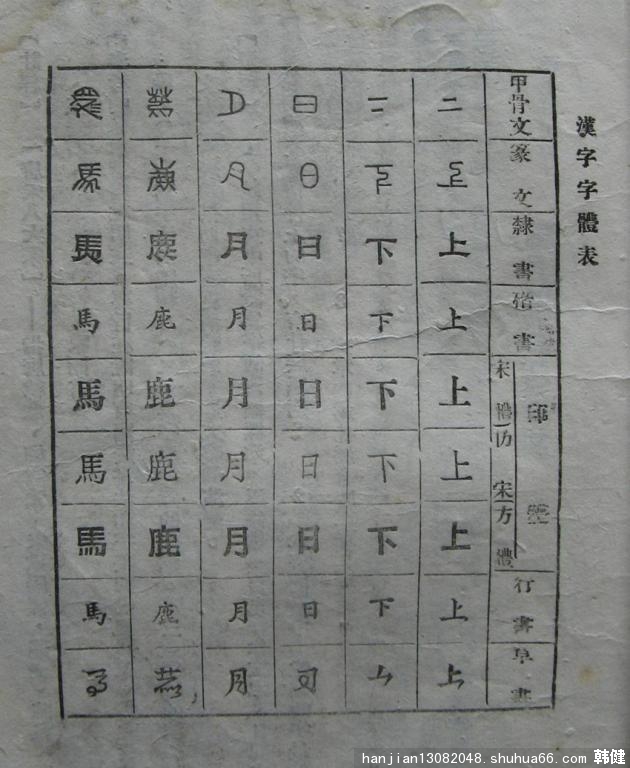 漢字字體表
甲骨文
篆文
隸書
楷書
印
宋體
仿宋
方體
行書
草書
上上上上上上上上上
下下下下下下下下下
日日日日日日日日日
月月月月月月月月月
鹿鹿鹿鹿鹿鹿鹿
馬馬馬馬馬馬馬馬
hanjian13082048.shuhua66.com 韩健